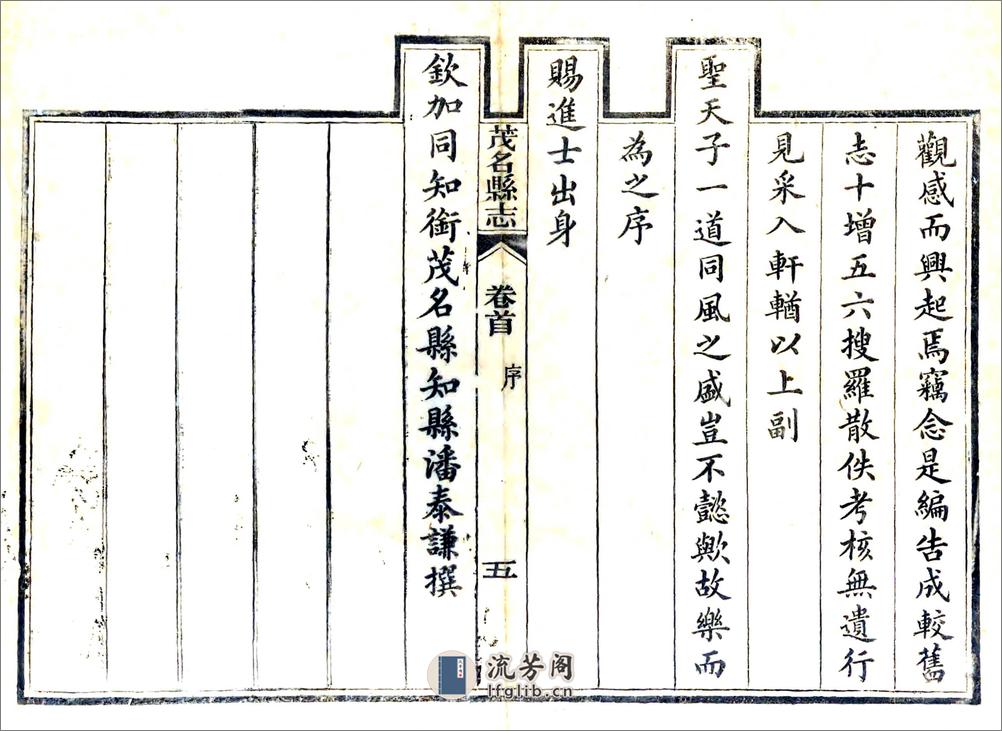 觀感而興起焉竊念是編告成較舊
志十增五六搜羅散佚考核無遺行
見采入軒輶以上副
聖天子一道同風之盛豈不懿歟故樂而
為之序
賜進士出身
茂名縣志
卷首
序
五
欽加同知銜茂名縣知縣潘泰謙撰
流芳阁
lfglib.cn